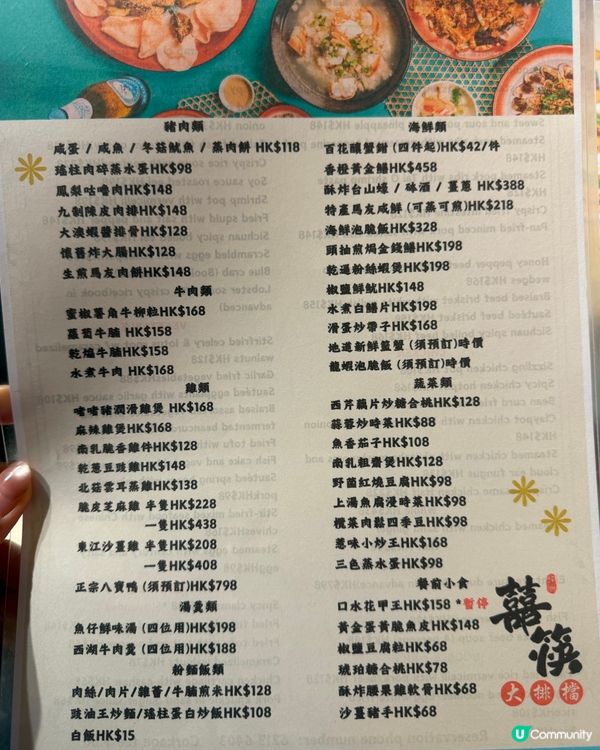 豬肉類
咸蛋 / 咸魚 / 冬菇魷魚 / 蒸肉餅 HK$118
瑤柱肉碎蒸水蛋HK$98
鳳梨咕嚕肉HK$148
九制陳皮肉排HK$148
大澳蝦醬排骨HK$128
懷舊炸大腸HK$128
生煎馬友肉餅HK$148
牛肉類
蜜椒薯角牛柳粒HK$168
蘿蔔牛腩 HK$158
乾煸牛腩HK$158
水煮牛肉 HK$168
雞類
啫啫豬潤滑雞煲 HK$168
麻辣雞煲HK$168
南乳脆香雞件HK$128
乾蔥豆豉雞HK$148
北菇雲耳蒸雞HK$138
脆皮芝麻雞 半隻HK$228
一隻HK$438
東江沙薑雞 半隻HK$208
一隻HK$408
正宗八寶鴨 (須預訂)HK$798
湯羹類
魚仔鮮味湯 (四位用)HK$198
西湖牛肉羹 (四位用)HK$188
粉麵飯類
肉絲/肉片/雜薈/牛腩煎米HK$128
豉油王炒麵/瑤柱蛋白炒飯HK$108
白飯HK$15
海鮮類
百花釀蟹鉗 (四件起)HK$42/件
香橙黃金鱔HK$458
酥炸台山蠔 / 砵酒 / 薑蔥 HK$388
特產馬友咸鮮 (可蒸可煎)HK$218
海鮮泡脆飯HK$328
頭抽煎焗金錢鱔HK$198
乾逼粉絲蝦煲HK$198
椒鹽鮮魷HK$148
水煮白鱔片HK$198
滑蛋炒帶子HK$168
地道新鮮籃蟹 (須預訂)時價
龍蝦泡脆飯 (須預訂)時價
蔬菜類
西芹藕片炒糖合桃HK$128
蒜蓉炒時菜HK$88
魚香茄子HK$108
南乳粗齋煲HK$128
野菌紅燒豆腐HK$98
上湯魚腐浸時菜HK$98
欖菜肉鬆四季豆HK$98
惹味小炒王HK$168
三色蒸水蛋HK$98
餐前小食
口水花甲王HK$158 *暫停
黃金蛋黃脆魚皮HK$148
椒鹽豆腐粒HK$68
琥珀糖合桃HK$78
酥炸腰果雞軟骨HK$68
沙薑豬手HK$68
囍筷
大排檔
U Community